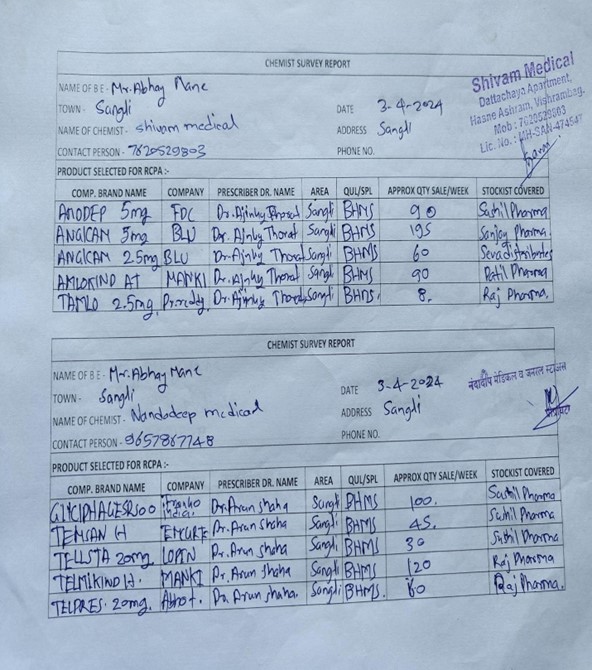 CHEMIST SURVEY REPORT
NAME OF B E - Mr. Abhay Mane
TOWN - Sangli DATE 3-4-2024
NAME OF CHEMIST - Shivam medical ADDRESS Sangli
CONTACT PERSON - 7620529803 PHONE NO.
Shivam Medical
Dattachaya Apartment,
Hasne Ashram, Vishrambag,
Mob : 7620529803
Lic. No. : MH-SAN-474547
PRODUCT SELECTED FOR RCPA :-
COMP. BRAND NAME COMPANY PRESCRIBER DR. NAME AREA QUL/SPL APPROX QTY SALE/WEEK STOCKIST COVERED
AMODEP 5mg FDC Dr. Ajinky Thorat Sangli BHMS 90 Sushil Pharma
ANGICAM 5mg BLU Dr. Ajinky Thorat Sangli BHMS 195 Sanjay Pharma
ANGICAM 2.5mg BLU Dr. Ajinky Thorat Sangli BHMS 60 Seva distributes
AMLOKIND AT MANKI Dr. Ajinky Thorat Sangli BHMS 90 Patil Pharma
TAMLO 2.5mg Dr. reddy Dr. Ajinky Thorat Sangli BHMS. 8. Raj Pharma.
CHEMIST SURVEY REPORT
NAME OF B E - Mr. Abhay Mane
TOWN - Sangli DATE 3-4-2024
NAME OF CHEMIST - Nandadeep medical ADDRESS Sangli
CONTACT PERSON - 9657867748 PHONE NO.
नंदादीप मेडिकल व जनरल स्टोअर्स
PRODUCT SELECTED FOR RCPA :-
COMP. BRAND NAME COMPANY PRESCRIBER DR. NAME AREA QUL/SPL APPROX QTY SALE/WEEK STOCKIST COVERED
Dr. Arun Shaha Sangli BHMS 100. Sushil Pharma
TEMSAN H EMCURE Dr. Arun Shaha Sangli BHMS 45. Sushil Pharma
TELLSTA 20mg LUPIN Dr. Arun Shaha Sangli BHMS 30 Sushil Pharma
TELMIKIND H. MANKI Dr. Arun Shaha Sangli BHMS 120 Raj Pharma
TELPRES. 20mg. Abbot. Dr. Arun Shaha. Sangli BHMS. 60 Raj Pharma.